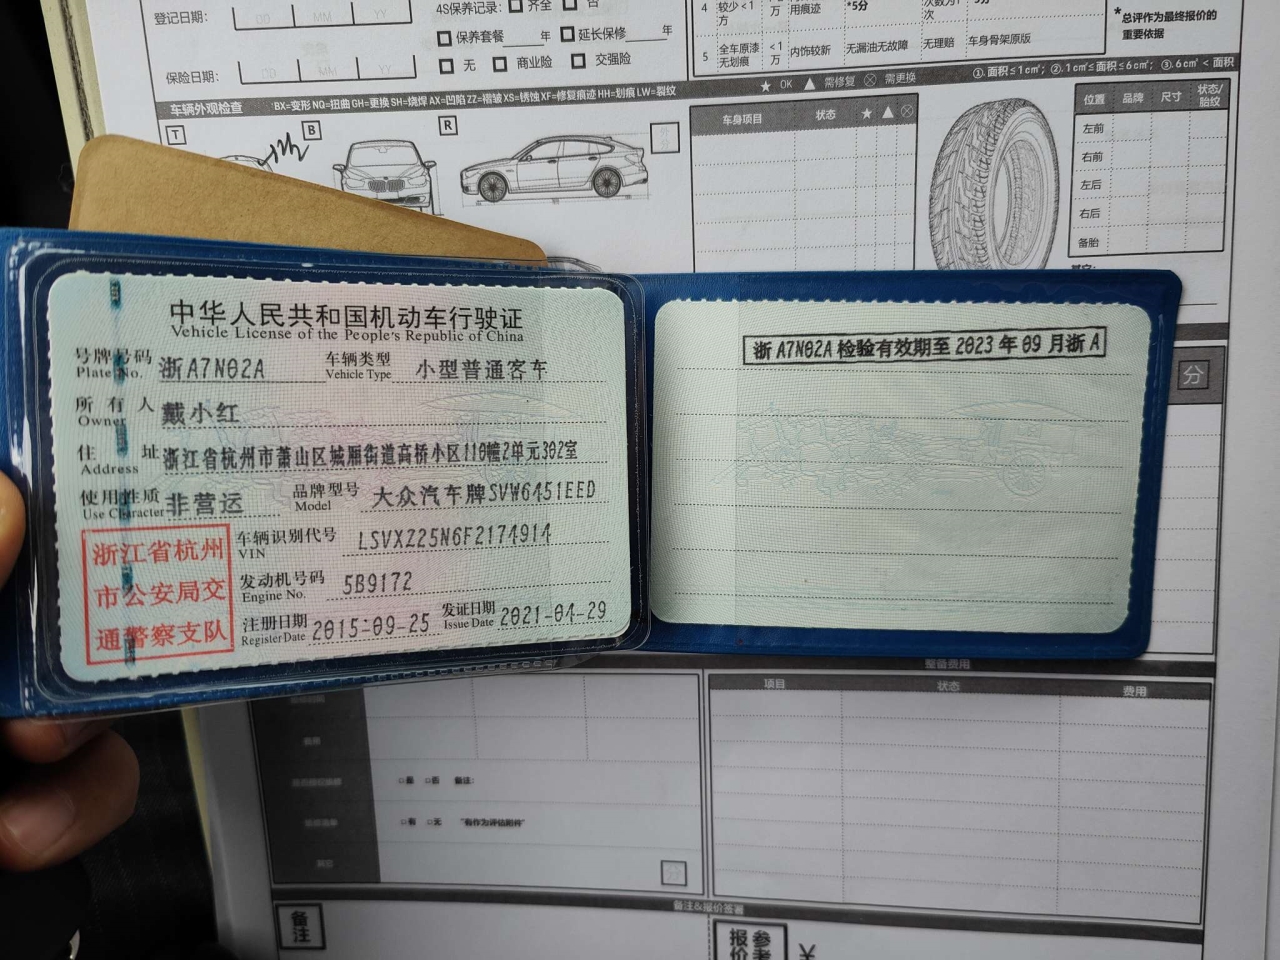 登记日期:
DD MM YY
4S保养记录: 齐全 否
保养套餐 年 延长保修 年
无 商业险 交强险
保险日期:
DD MM YY
4 较少<1万 用痕迹 *5分
5 全车原漆无划痕 <1万 内饰较新 无漏油无故障 无理赔 车身骨架原版
*总评作为最终报价的
重要依据
★ OK ▲ 需修复 ⊗ 需更换
①.面积≤1c㎡; ②.1c㎡≤面积≤6c㎡; ③.6c㎡<面积
车辆外观检查 BX=变形 NQ=扭曲 GH=更换 SH=烧焊 AX=凹陷 ZZ=褶皱 XS=锈蚀 XF=修复痕迹 HH=划痕 LW=裂纹
T B R
车身项目 状态 ★ ▲ ⊗
位置 品牌 尺寸 状态/胎纹
左前
右前
左后
右后
备胎
中华人民共和国机动车行驶证
Vehicle License of the People's Republic of China
号牌号码 浙A7N02A 车辆类型 小型普通客车
Plate No. Vehicle Type
所有人 戴小红
Owner
住址 浙江省杭州市萧山区城厢街道高桥小区110幢2单元302室
Address
使用性质 非营运 品牌型号 大众汽车牌SVW6451EED
Use Character Model
浙江省杭州
市公安局交
通警察支队
车辆识别代号 LSVXZ25N6F2174914
VIN
发动机号码 5B9172
Engine No.
注册日期 2015-09-25 发证日期 2021-04-29
Register Date Issue Date
浙A7N02A检验有效期至2023年09月浙A
分
整备费用
项目 状态 费用
□是 □否 备注:
□有 □无 "有作为评估附件"
其它
分
备注&报价说
备注
报价参考
¥